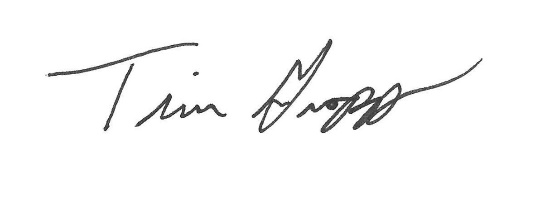 Tim Gropp